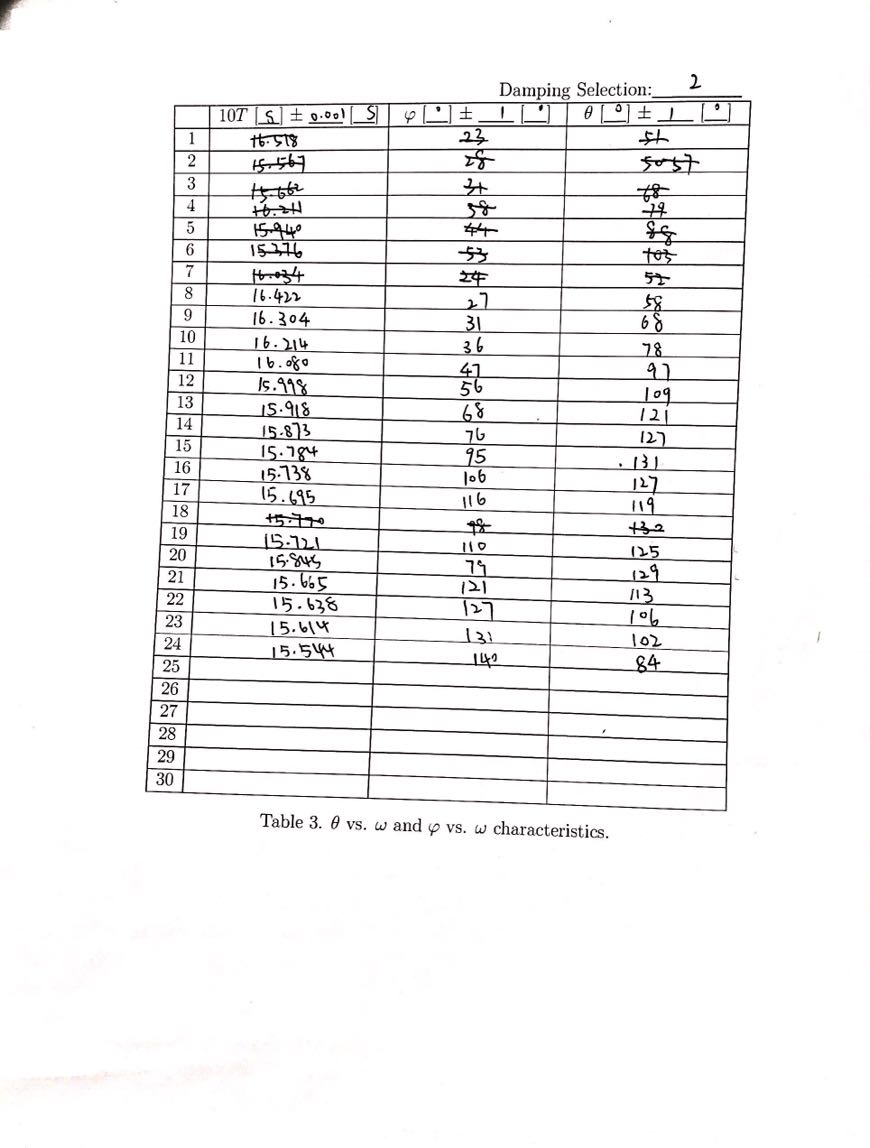 Damping Selection: 2
10T [S] ± 0.001 [S] φ [°] ± 1 [°] θ [°] ± 1 [°]
1 16.518 23 51
2 15.567 28 50 57
3 15.662 31 68
4 16.211 38 79
5 15.940 44 88
6 15.376 53 103
7 16.034 24 52
8 16.422 27 58
9 16.304 31 68
10 16.214 36 78
11 16.080 47 97
12 15.998 56 109
13 15.918 68 121
14 15.873 76 127
15 15.784 95 131
16 15.738 106 127
17 15.695 116 119
18 15.770 98 132
19 15.721 110 125
20 15.845 79 129
21 15.665 121 113
22 15.638 127 106
23 15.614 131 102
24 15.544 140 84
25
26
27
28
29
30
Table 3. θ vs. ω and φ vs. ω characteristics.